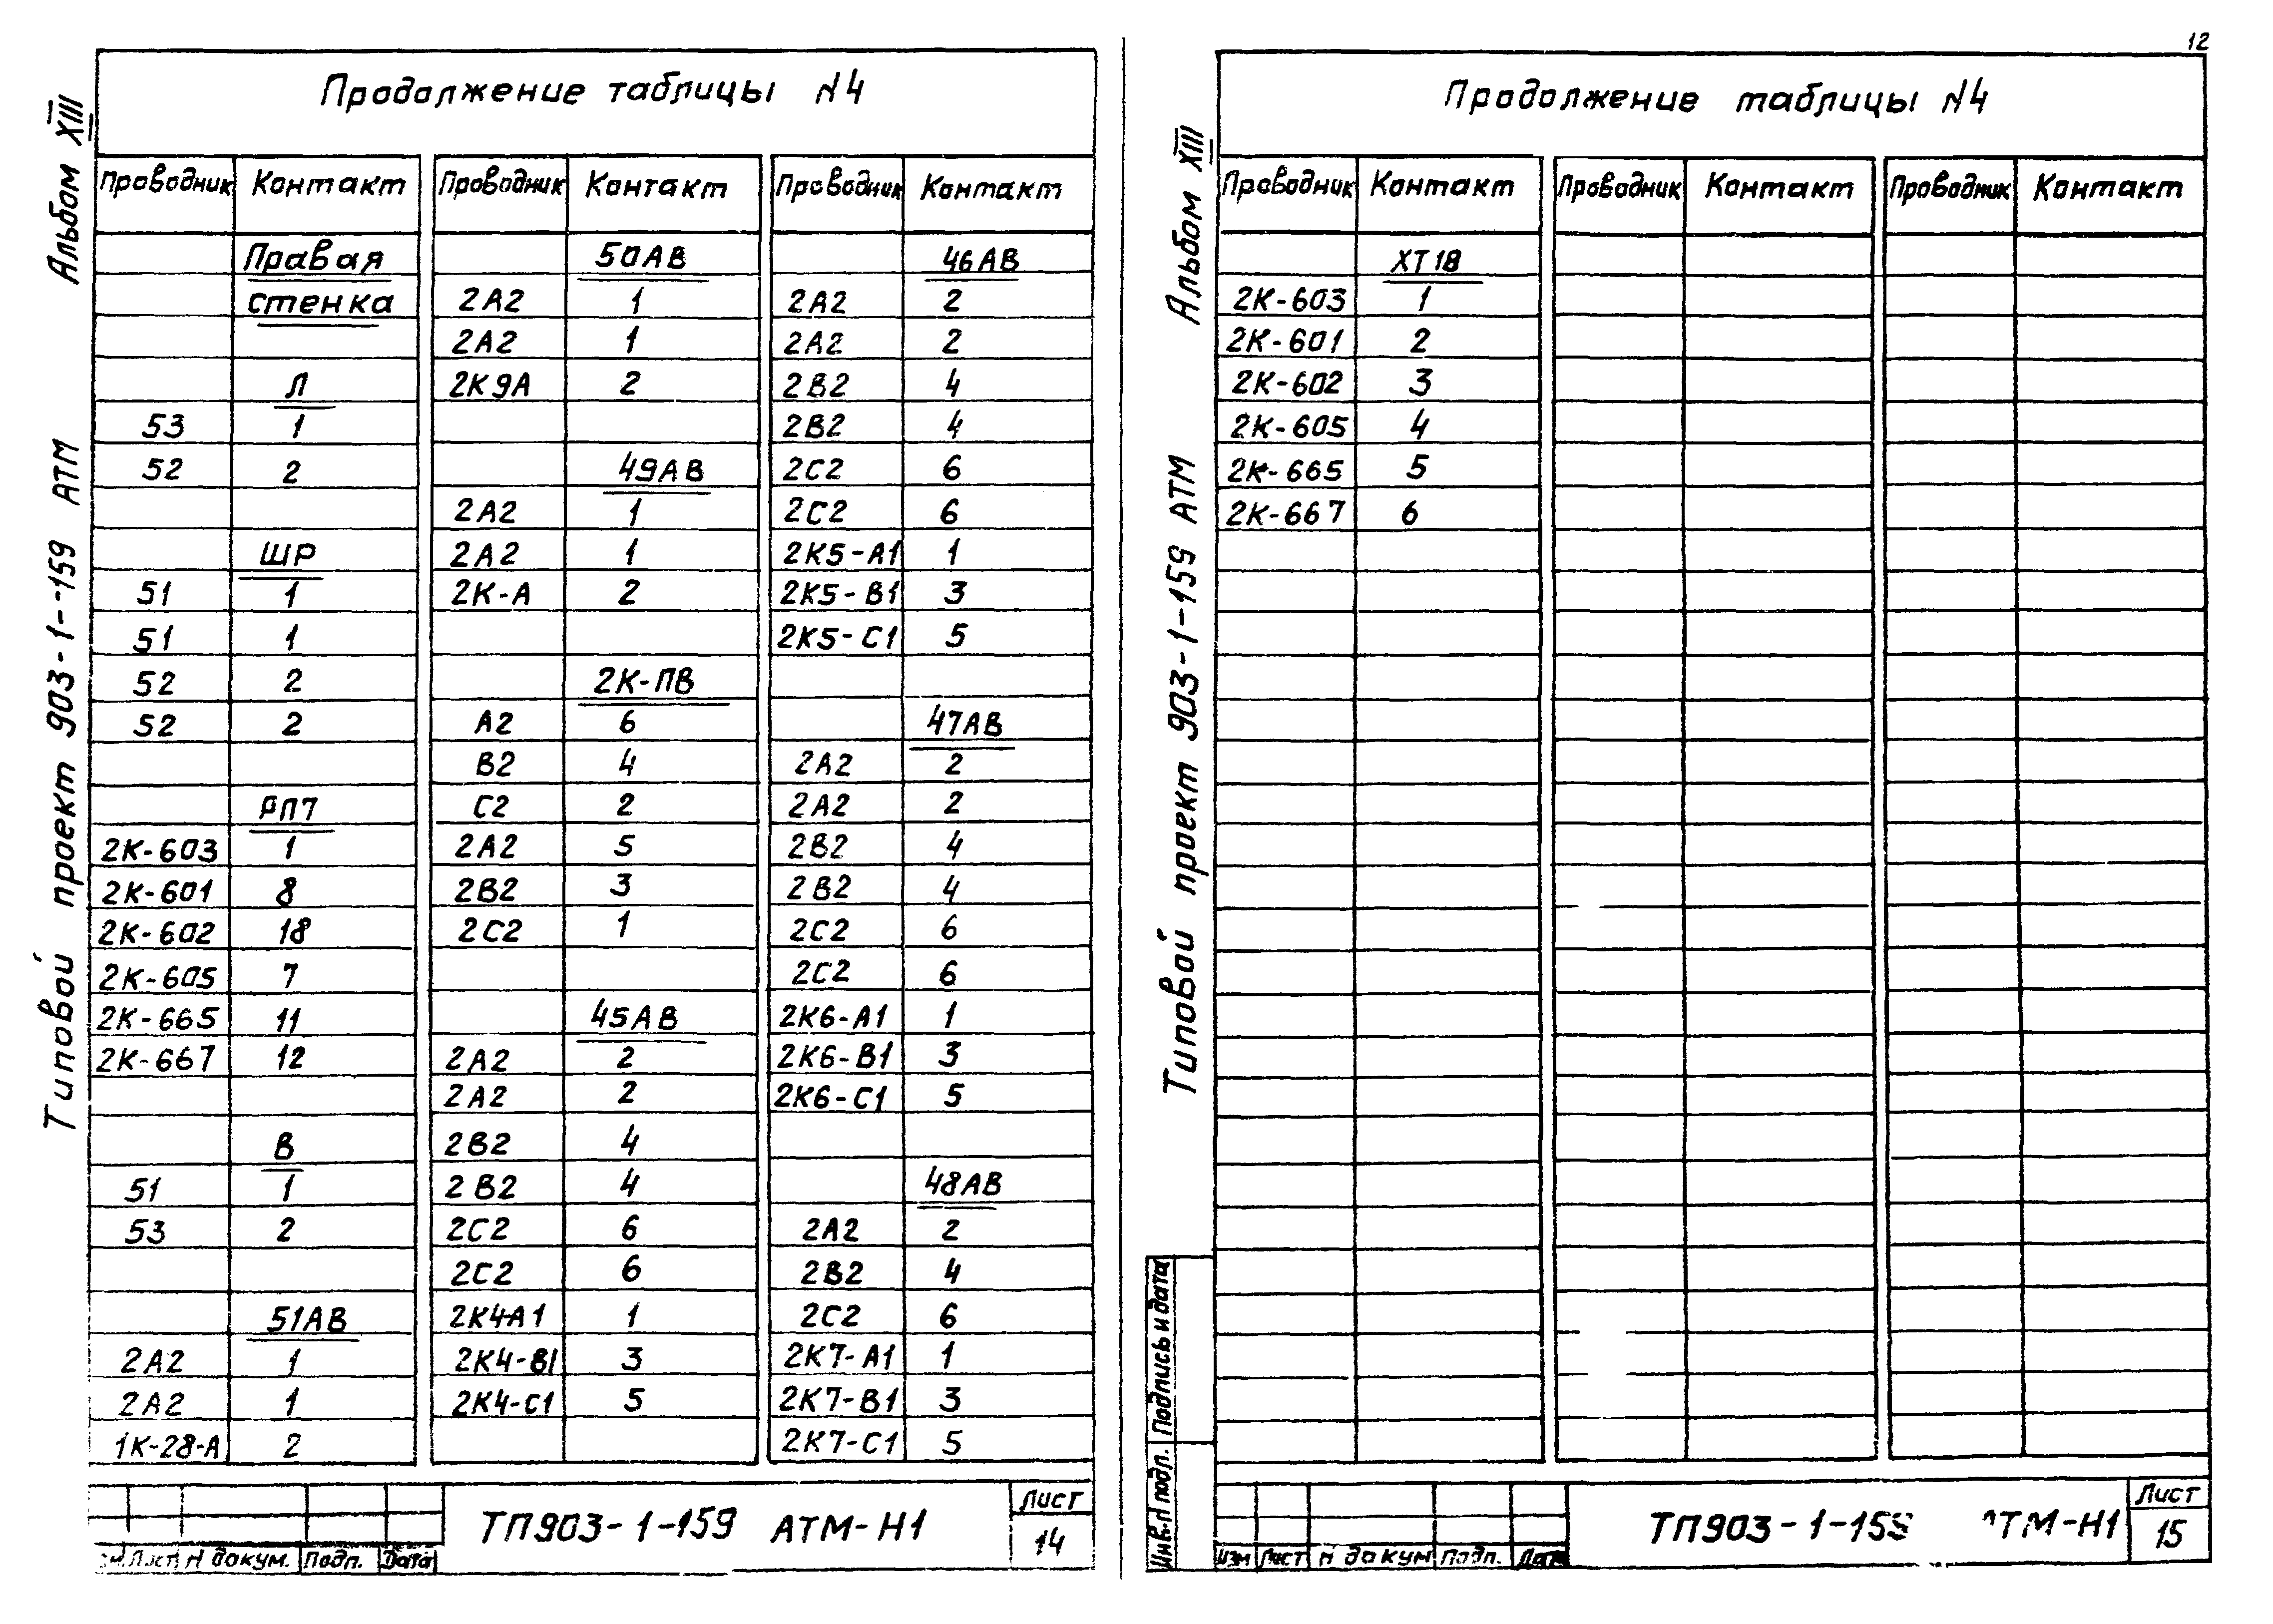 12
Альбом XIII
Типовой проект 903-1-159 АТМ
Продолжение таблицы N4
Проводник Контакт Проводник Контакт Проводник Контакт
Правая 50АВ 46АВ
стенка 2А2 1 2А2 2
2А2 1 2А2 2
Л 2К9А 2 2В2 4
53 1 2В2 4
52 2 49АВ 2С2 6
2А2 1 2С2 6
ШР 2А2 1 2К5-А1 1
51 1 2К-А 2 2К5-В1 3
51 1 2К5-С1 5
52 2 2К-ПВ
52 2 А2 6 47АВ
В2 4 2А2 2
РП7 С2 2 2А2 2
2К-603 1 2А2 5 2В2 4
2К-601 8 2В2 3 2В2 4
2К-602 18 2С2 1 2С2 6
2К-605 7 2С2 6
2К-665 11 45АВ 2К6-А1 1
2К-667 12 2А2 2 2К6-В1 3
2А2 2 2К6-С1 5
В 2В2 4
51 1 2В2 4 48АВ
53 2 2С2 6 2А2 2
2С2 6 2В2 4
51АВ 2К4А1 1 2С2 6
2А2 1 2К4-В1 3 2К7-А1 1
2А2 1 2К4-С1 5 2К7-В1 3
1К-28-А 2 2К7-С1 5
Лист N докум. Подп. Дата
ТП903-1-159 АТМ-Н1
Лист
14
Альбом XIII
Типовой проект 903-1-159 АТМ
Подпись и дата
Инв.N подл.
Продолжение таблицы N4
Проводник Контакт Проводник Контакт Проводник Контакт
ХТ18
2К-603 1
2К-601 2
2К-602 3
2К-605 4
2К-665 5
2К-667 6
Изм Лист N докум Подп.
ТП903-1-159 АТМ-Н1
Лист
15